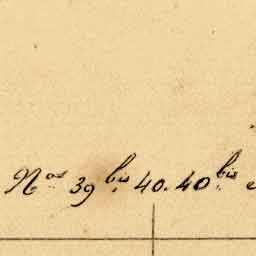 Nos 39 bis 40. 40 bis